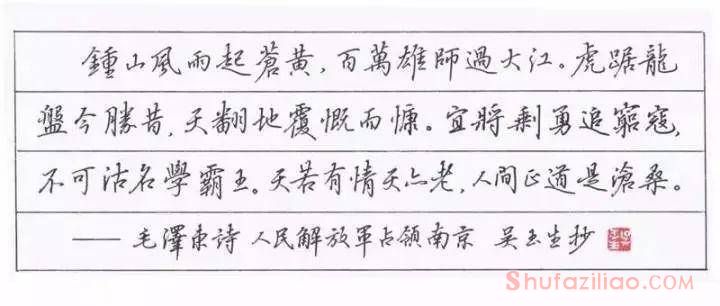 鍾山風雨起蒼黃，百萬雄師過大江。虎踞龍
盤今勝昔，天翻地覆慨而慷。宜將剩勇追窮寇，
不可沽名學霸王。天若有情天亦老，人間正道是滄桑。
—— 毛澤東詩 人民解放軍占領南京 吴玉生抄
Shufaziliao.com